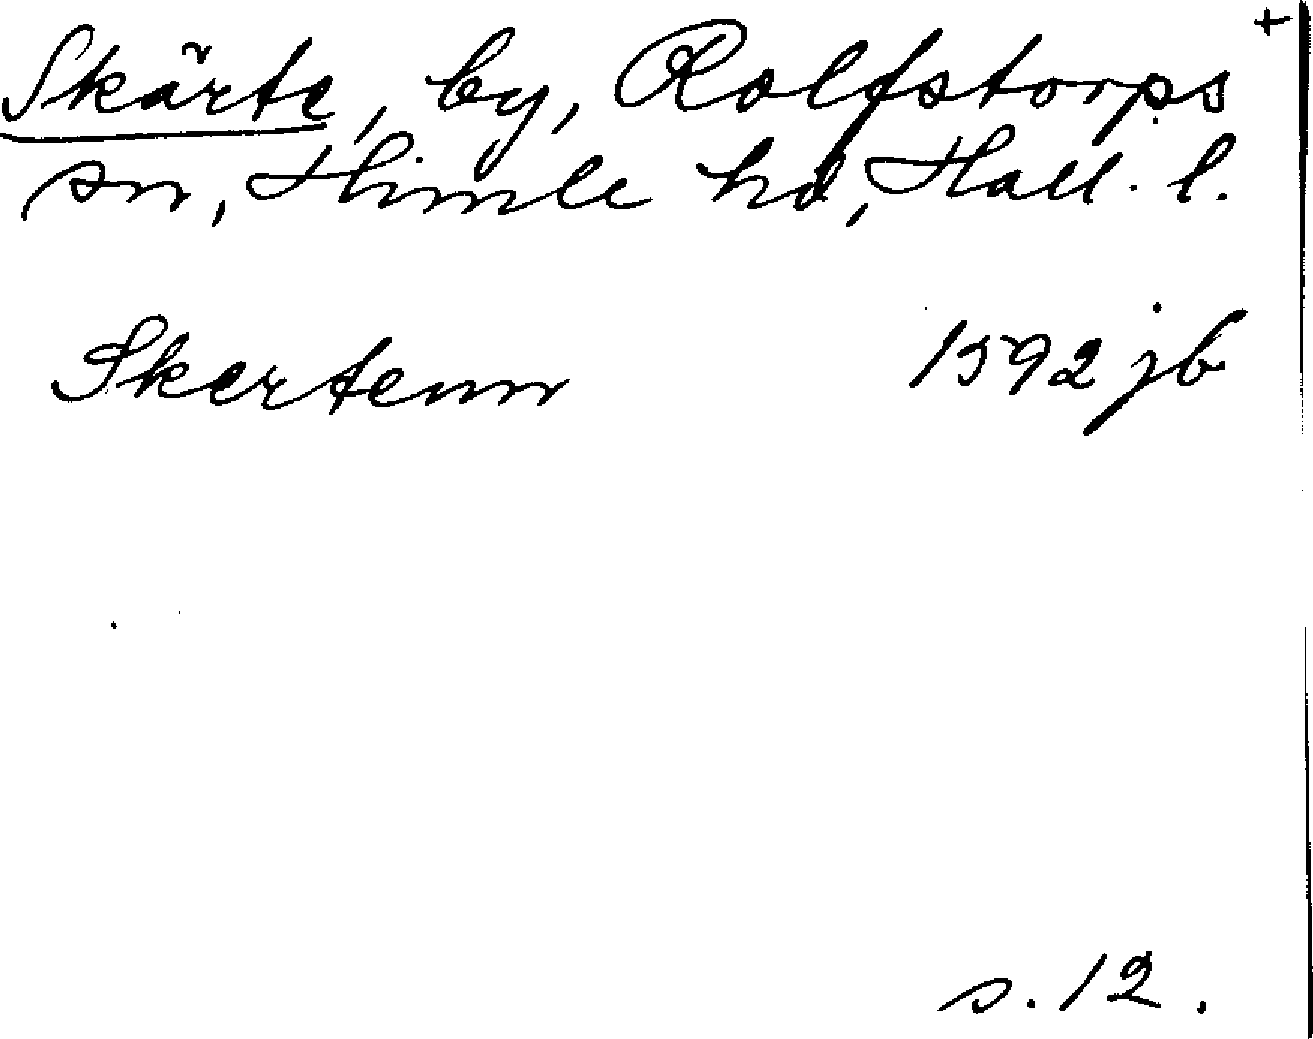 +
Skärte, by, Rolfstorps
sn, Himle hd, Hall. l.
Skertenn 1592 jb
s. 12.